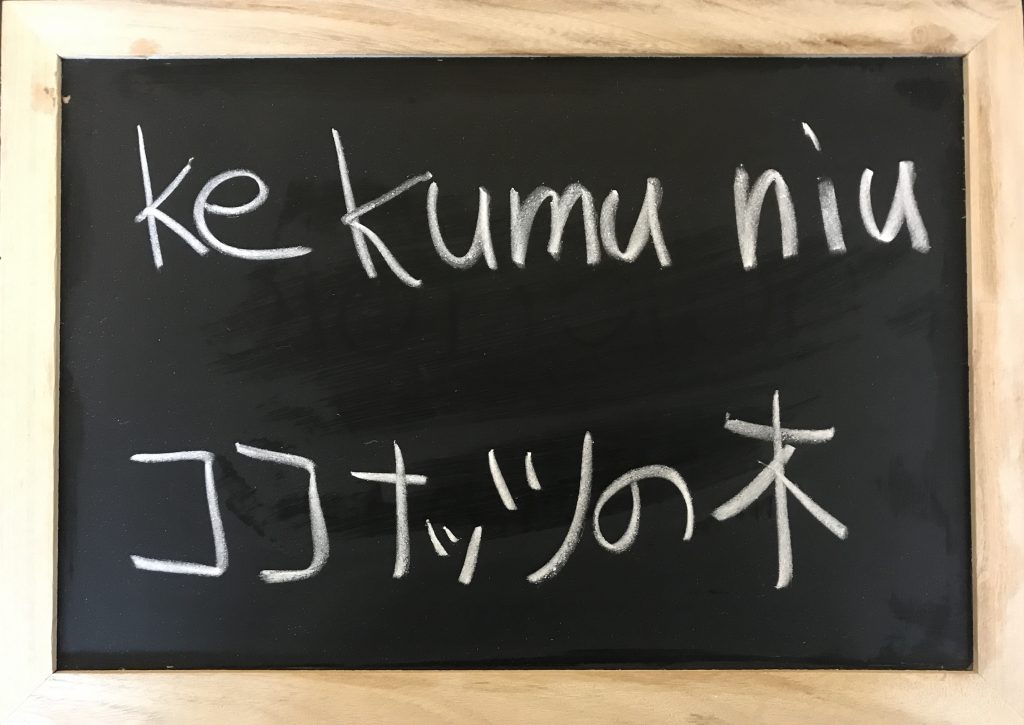 ke kumu niu
ココナッツの木